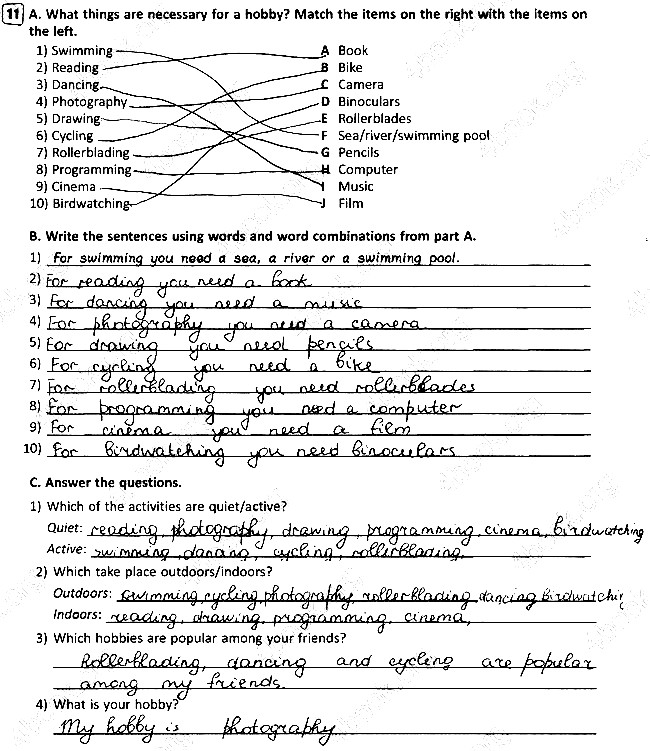 11 A. What things are necessary for a hobby? Match the items on the right with the items on
the left.
1) Swimming A Book
2) Reading B Bike
3) Dancing C Camera
4) Photography D Binoculars
5) Drawing E Rollerblades
6) Cycling F Sea/river/swimming pool
7) Rollerblading G Pencils
8) Programming H Computer
9) Cinema I Music
10) Birdwatching J Film
B. Write the sentences using words and word combinations from part A.
1) For swimming you need a sea, a river or a swimming pool.
2) For reading you need a book
3) For dancing you need a music
4) For photography you need a camera
5) For drawing you need pencils
6) For cycling you need a bike
7) For rollerblading you need rollerblades
8) For programming you need a computer
9) For cinema you need a film
10) For birdwatching you need binoculars
C. Answer the questions.
1) Which of the activities are quiet/active?
Quiet: reading, photography, drawing, programming, cinema, birdwatching
Active: swimming, dancing, cycling, rollerblading,
2) Which take place outdoors/indoors?
Outdoors: swimming, cycling, photography, rollerblading, dancing birdwatchin
Indoors: reading, drawing, programming, cinema,
3) Which hobbies are popular among your friends?
Rollerblading, dancing and cycling are popular
among my friends.
4) What is your hobby?
My hobby is photography